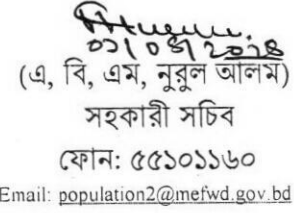 (এ, বি, এম, নুরুল আলম)
সহকারী সচিব
ফোন: ৫৫১০১১৬০
Email: population2@mefwd.gov.bd